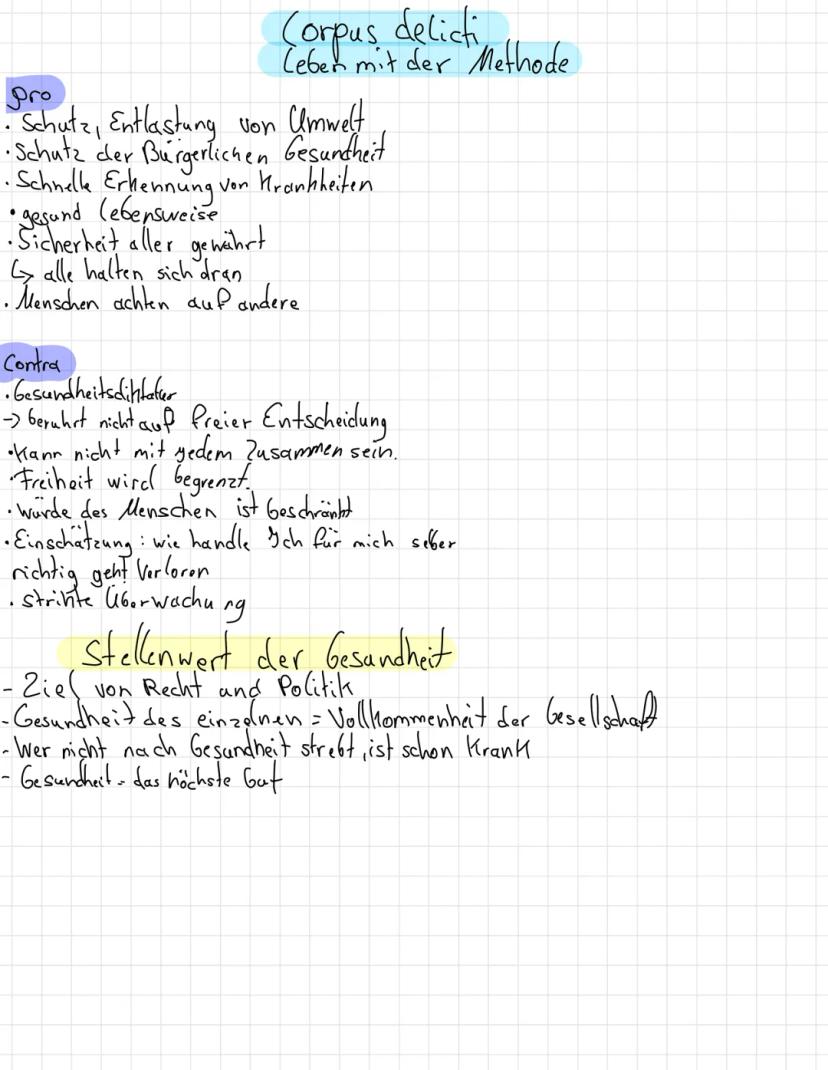 Corpus delicti
Leben mit der Methode
pro
· Schutz, Entlastung von Umwelt
· Schutz der Bürgerlichen Gesundheit
· Schnelle Erkennung von Krankheiten
• gesund Lebensweise
· Sicherheit aller gewährt
↳ alle halten sich dran
· Menschen achten auf andere
Contra
· Gesundheitsdiktatur
→ beruhrt nicht auf freier Entscheidung
· Kann nicht mit yedem Zusammen sein.
· Freiheit wird begrenzt.
· würde des Menschen ist beschränkt
· Einschätzung: wie handle Ich für mich selber
richtig geht Verloren
· strikte Überwachung
Stellenwert der Gesundheit
- Ziel von Recht und Politik
- Gesundheit des einzelnen = Vollkommenheit der Gesellschaft
- Wer nicht nach Gesundheit strebt, ist schon Krank
- Gesundheit = das höchste Gut